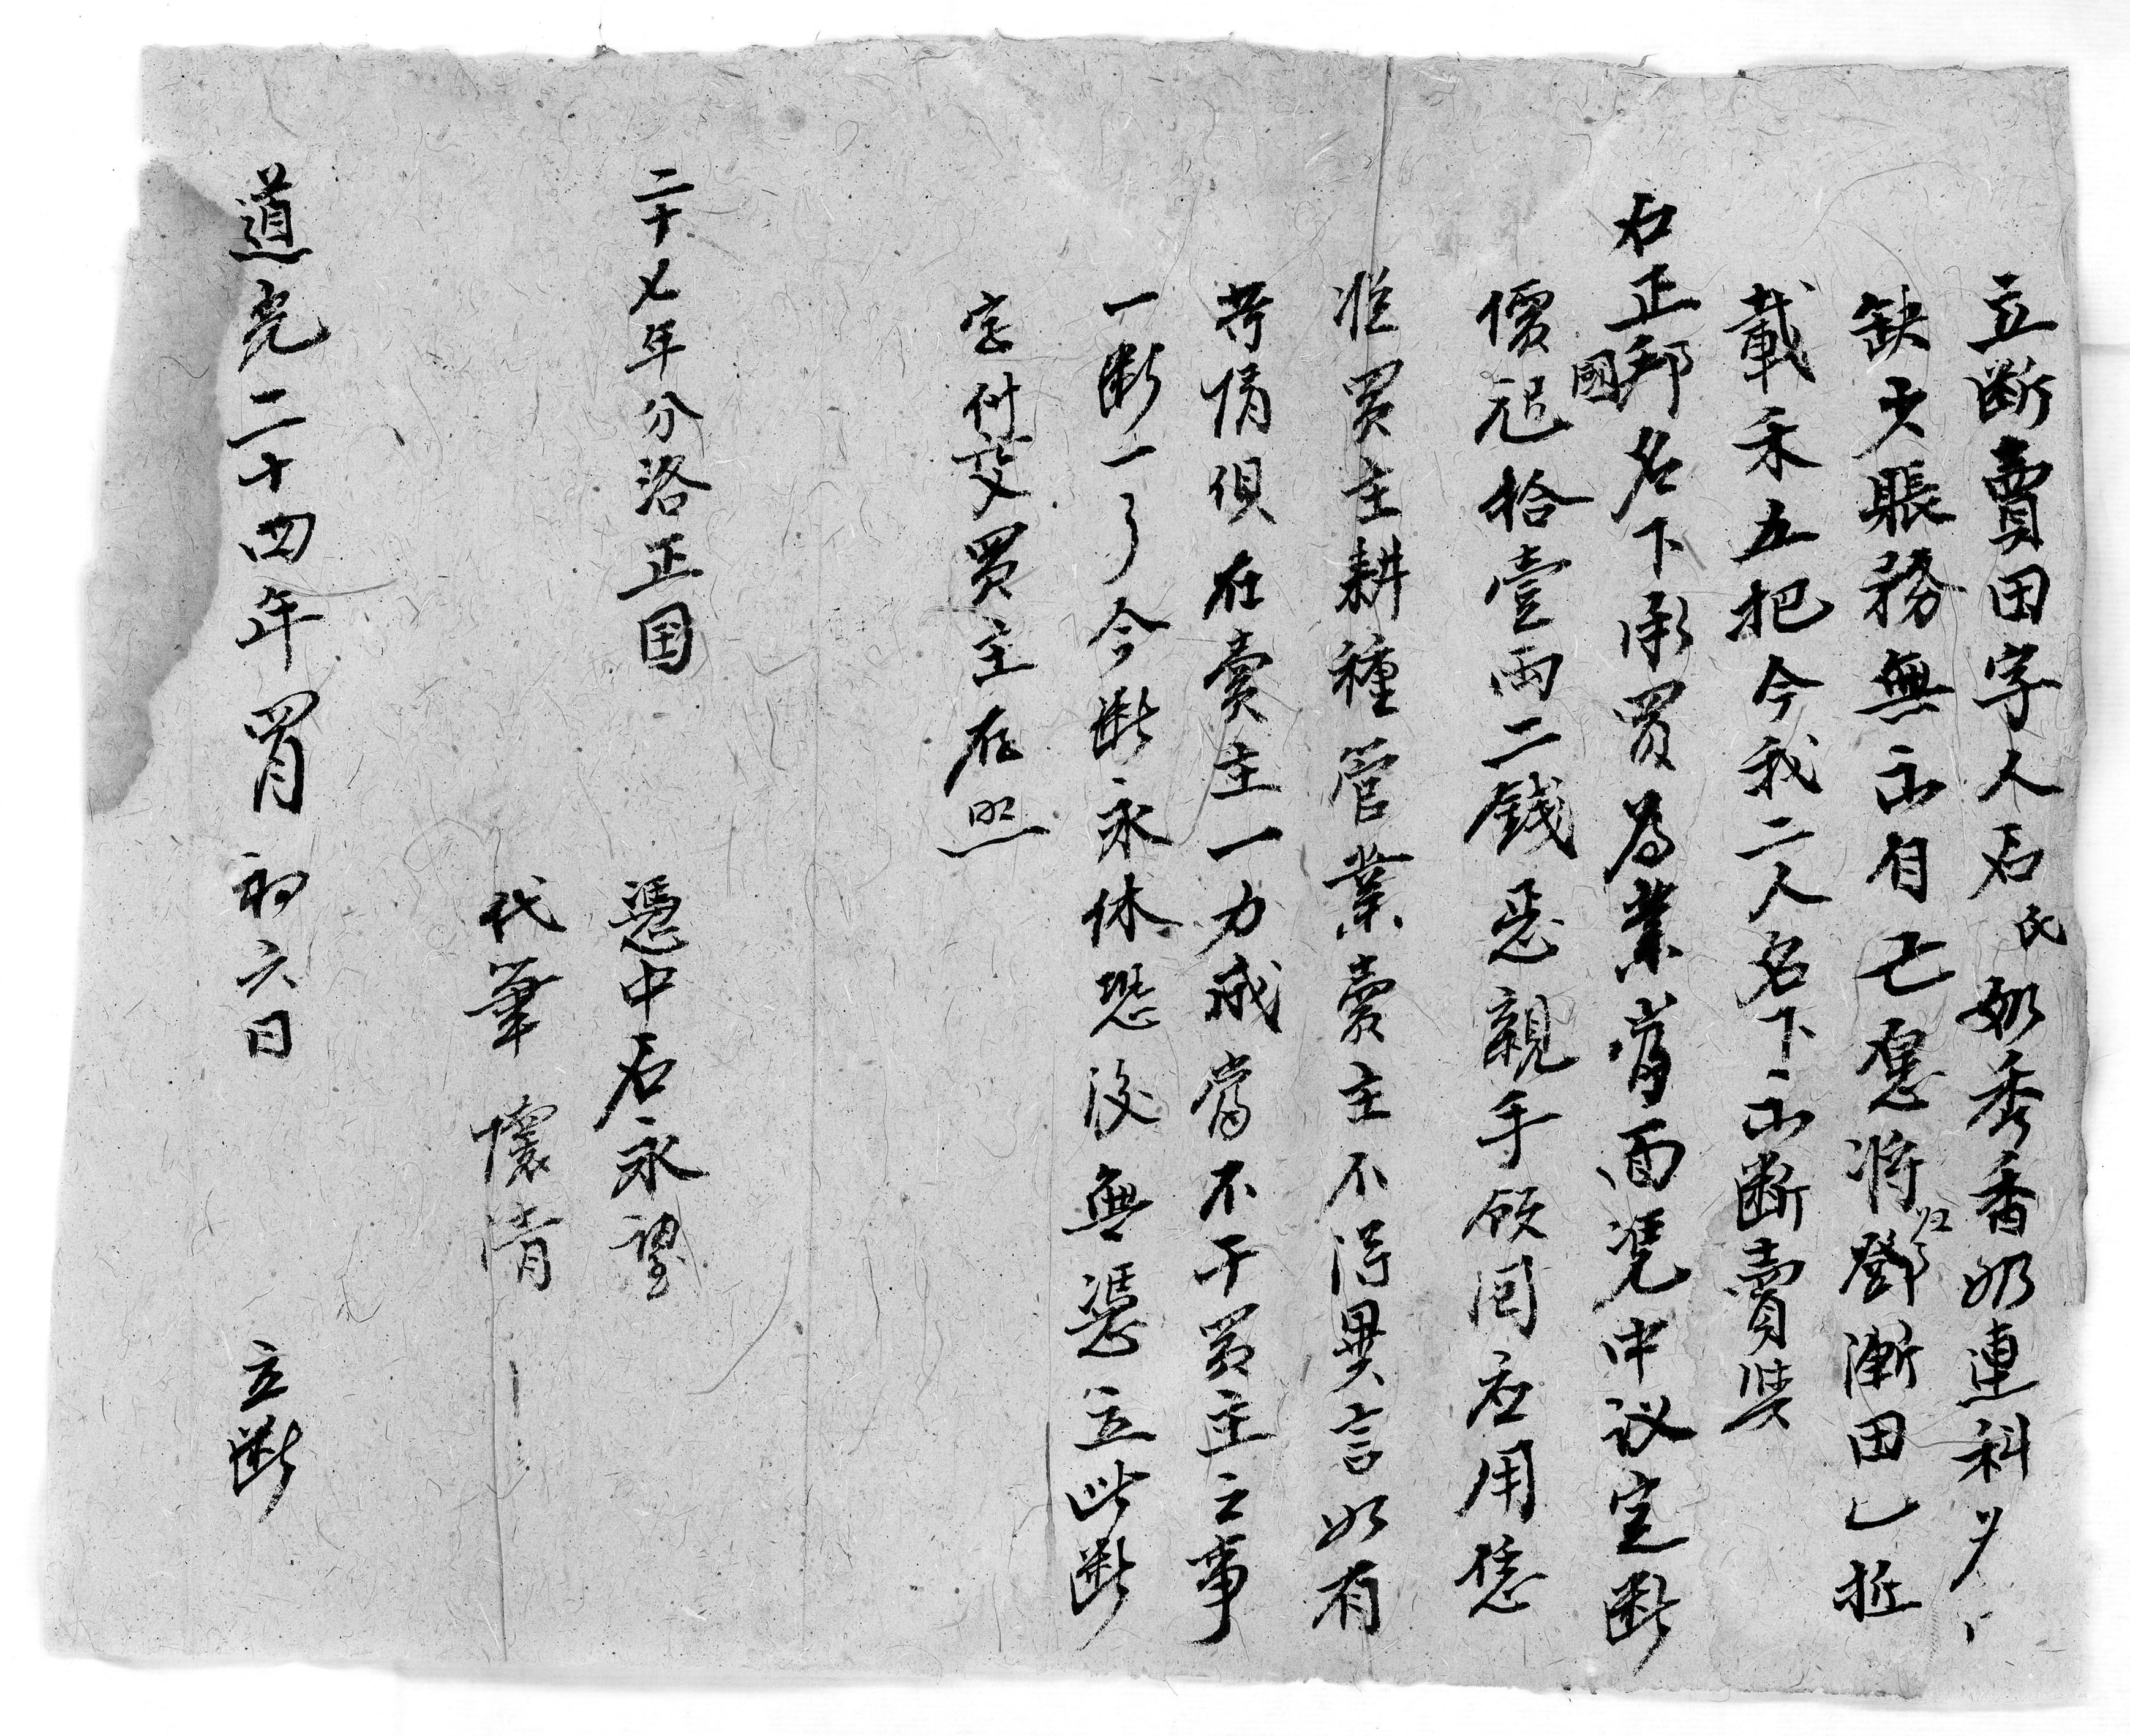 立断賣田字人石氏奶秀香奶連科
缺少賬務無出自己應将鄧漸田乚坵
載禾五把今我二人名下出断賣與
石正邦國名下承買為業當面凭中议定断
價艮拾壹両二錢忝親手領囘应用恁
從買主耕種管業賣主不淂異言如有
等情俱在賣主一力成當不干買主之事
一断一了今断永休恐後無憑立此断
字付交買主存照
二十七年分洛正国
憑中石永望
代筆 懷清
道光二十四年 月初六日 立断